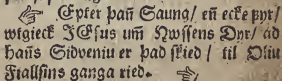 Epter þañ Saung/ eñ ecke fyr/
utgieck JEsus um Nyssens Dyr/ ad
hañs Sidveniu er þad skied/ til Oliu
Fiallsins ganga ried.